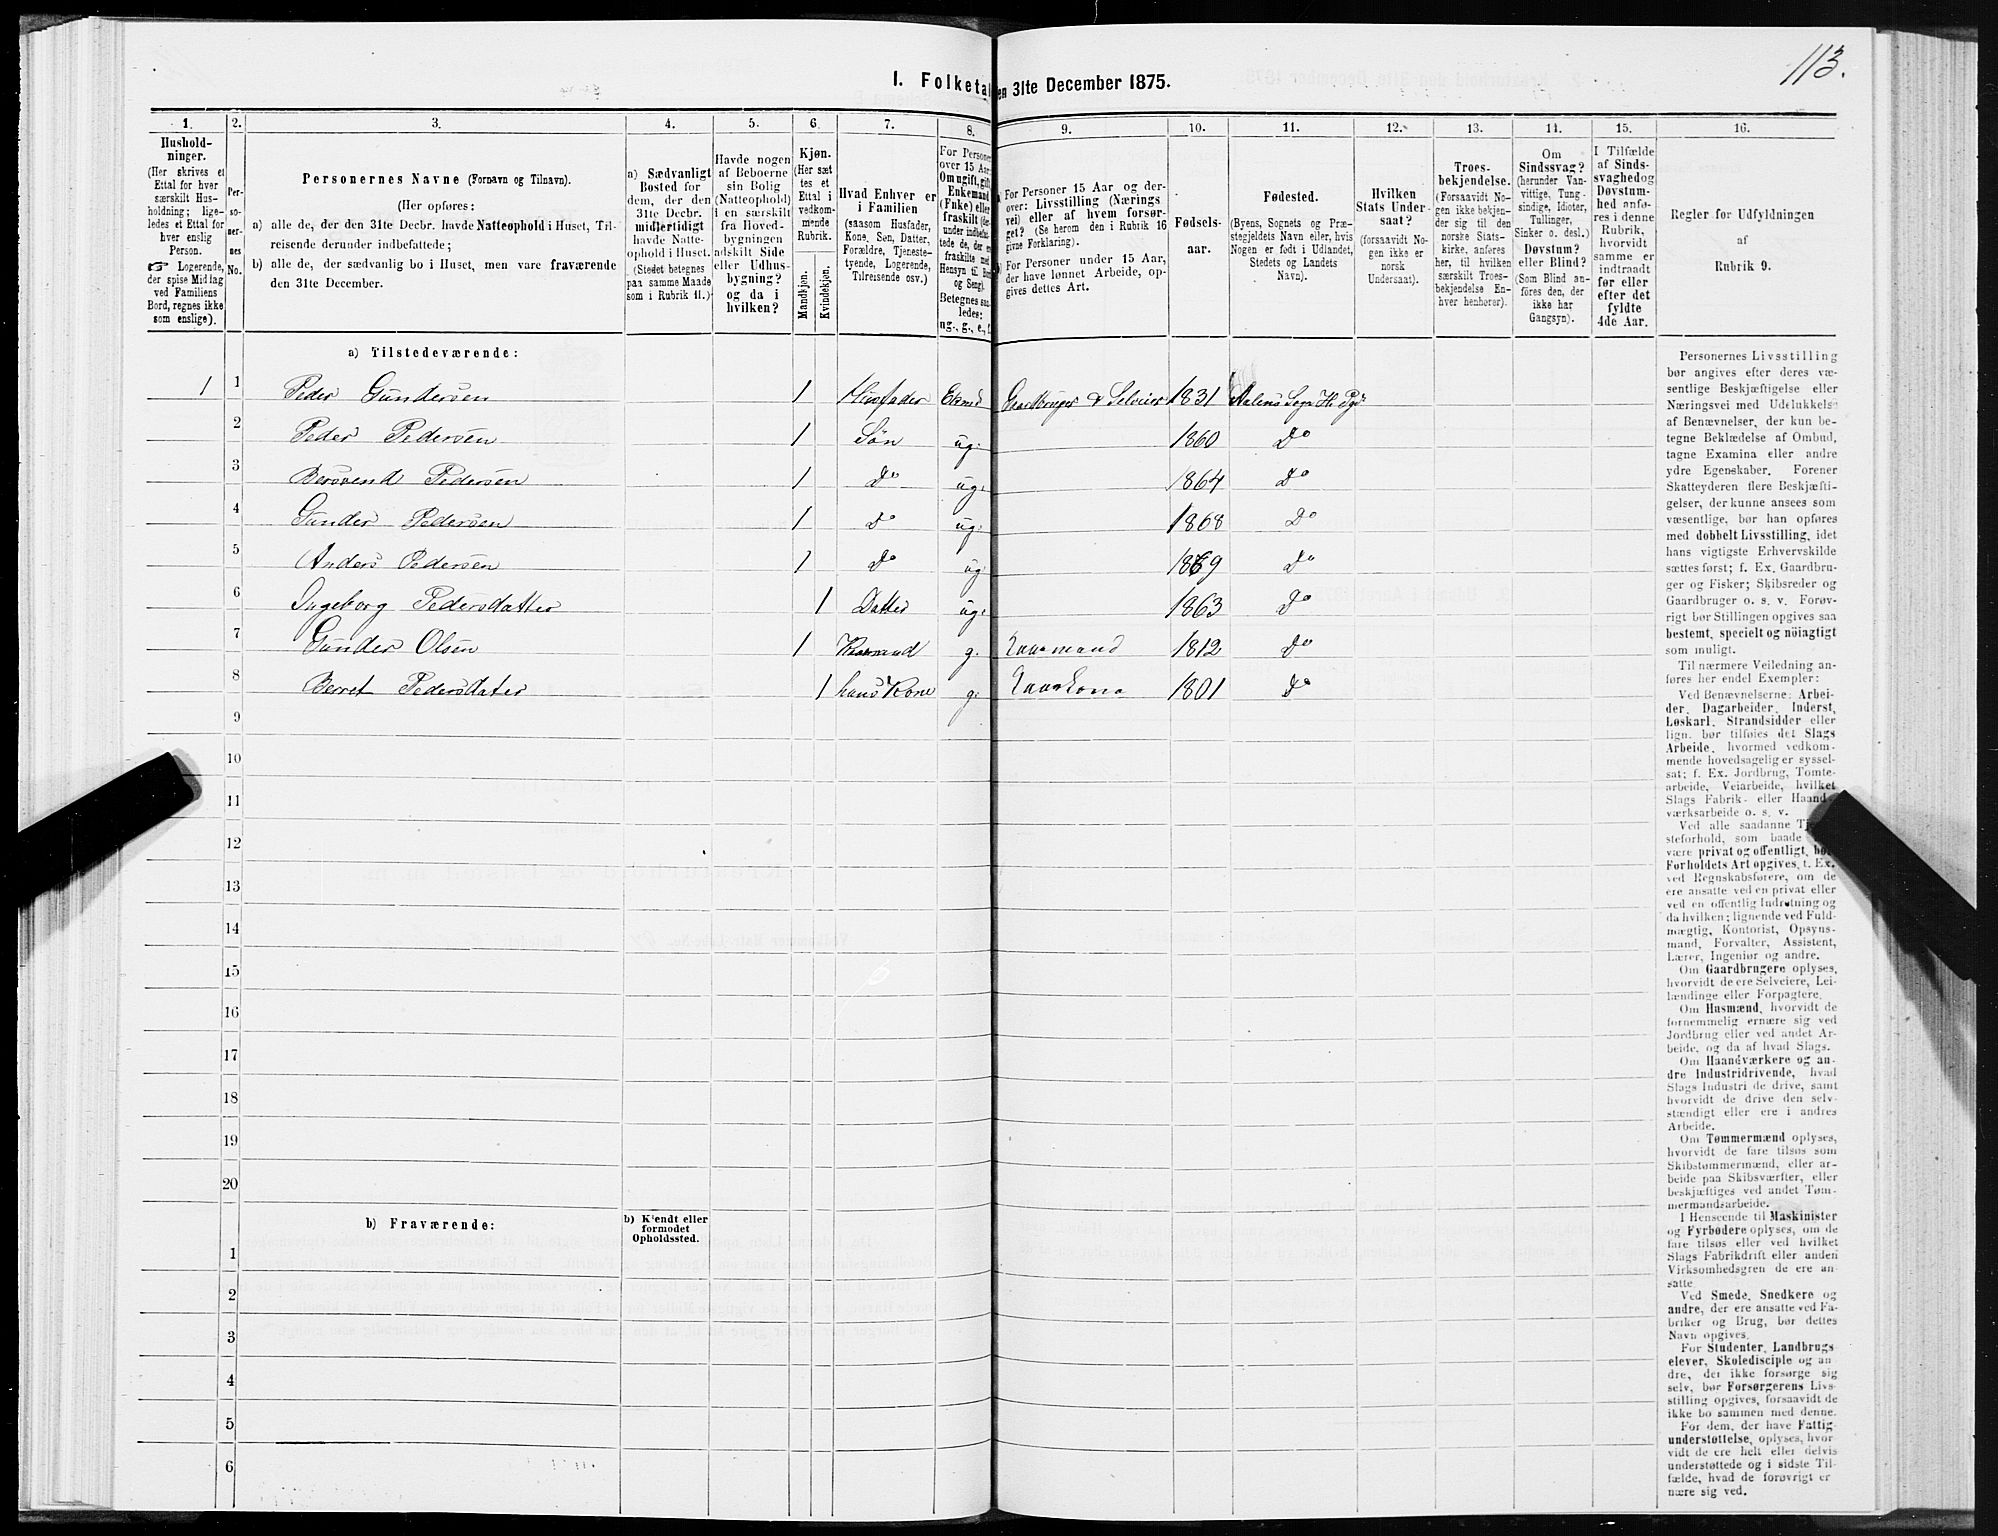 113.
I. Folketal en 31te December 1875.
1. 2. 3. 4. 5. 6. 7. 8. 9. 10. 11. 12. 13. 14. 15. 16.
Hushold-
ninger.
(Her skrives et
Ettal for hver
særskilt Hus-
holdning; lige-
ledes et Ettal for
hver enslig
Person.
☞ Logerende,
der spise Middag
ved Familiens
Bord, regnes ikke
som enslige).
Per-
so-
ner-
nes
No.
Personernes Navne (Fornavn og Tilnavn).
(Her opføres:
a) alle de, der den 31te Decbr. havde Natteophold i Huset, Til-
reisende derunder indbefattede;
b) alle de, der sædvanlig bo i Huset, men vare fraværende
den 31te December.
a) Sædvanligt
Bosted for
dem, der den
31te Decbr.
midlertidigt
havde Natte-
ophold i Huset.
(Stedet betegnes
paa samme Maade
som i Rubrik 11.)
Havde nogen
af Beboerne
sin Bolig
(Natteophold)
i en særskilt
fra Hoved-
bygningen
adskilt Side
eller Udhus-
bygning?
og da i
hvilken?
Kjøn.
(Her sæt
tes et
Ettal i
vedkom-
mende
Rubrik.
Mandkjøn.
Kvindekjøn.
Hvad Enhver er
i Familien
(saasom Husfader,
Kone, Søn, Datter,
Forældre, Tjeneste-
tyende, Logerende,
Tilreisende osv.)
For Personer
over 15 Aar
Om ugift, gift
Enkemand
(Enke) eller
fraskilt (der-
under indbefat-
tede de, der er
fraskilte med
Hensyn til Bord
og Seng).
Betegnes saa-
ledes:
ug., g., e., f.
a) For Personer 15 Aar og der-
over: Livsstilling (Nærings
vei) eller af hvem forsør-
get? (Se herom den i Rubrik 16
givne Forklaring).
b) For Personer under 15 Aar,
der have lønnet Arbeide, op-
gives dettes Art.
Fødsels-
aar.
Fødested.
(Byens, Sognets og Præ-
stegjeldets Navn eller, hvis
Nogen er født i Udlandet,
Stedets og Landets
Navn).
Hvilken
Stats Under-
saat?
(forsaavidt No-
gen ikke er
norsk
Undersaat).
Troes-
bekjendelse.
(Forsaavidt No-
gen ikke bekjen-
der sig til den
norske Stats-
kirke, anføres
her, til hvilken
særskilt Troes-
bekjendelse En-
hver henhører).
Om
Sindssvag?
(herunder Van-
vittige, Tung-
sindige, Idioter,
Tullinger,
Sinker o. desl.)
Døvstum?
eller Blind?
(Som Blind an-
føres den, der
ikke har
Gangsyn).
I Tilfælde
af Sinds-
svaghed og
Døvstum-
hed anfø-
res i denne
Rubrik,
hvorvidt
samme er
indtraadt
før eller
efter det
fyldte
4de Aar.
Regler for Udfyldningen
af
Rubrik 9.
a) Tilstedeværende:
1 1 Peder Gundersen 1 Husfader Ekmd Gaardbruger & Selveier 1831 Aalens Sogn H. Pgd
2 Peder Pedersen 1 Søn ug: 1860 Do
3 Bersvend Pedersen 1 Do ug: 1864 Do
4 Gunder Pedersen 1 Do ug: 1868 Do
5 Anders Pedersen 1 Do ug 1869 Do
6 Ingeborg Pedersdatter 1 Datter ug: 1863 Do
7 Gunder Olsen 1 g. Kaarmand 1812 Do
8 Berret Pedersdater 1 hans Kone g. Kaarkone 1801 Do
9
10
11
12
13
14
15
16
17
18
19
20
b) Fraværende:
b) Kjendt eller
formodet
Opholdssted.
1
2
3
4
5
6
Personernes Livsstilling
bør angives efter deres væ-
sentlige Beskjæftigelse eller
Næringsvei med Udelukkelse
af Benævnelser, der kun be-
tegne Beklædelse af Ombud,
tagne Examina eller andre
ydre Egenskaber. Forener
Skatteyderen flere Beskjæfti-
gelser, der kunne ansees som
væsentlige, bør han opføres
med dobbelt Livsstilling, idet
hans vigtigste Erhvervskilde
sættes først; f. Ex. Gaardbru-
ger og Fisker; Skibsreder og
Gaardbruger o. s. v. Forøv-
rigt bør Stillingen opgives saa
bestemt, specielt og nöiagtigt
som muligt.
Til nærmere Veiledning an-
føres her endel Exempler:
Ved Benævnelserne: Arbei-
der, Dagarbeider, Inderst,
Løskarl, Strandsidder eller
lign. bør tilføies det Slags
Arbeide, hvormed vedkom-
mende hovedsagelig er syssel-
sat; f. Ex. Jordbrug, Tomte-
arbeide, Veiarbeide, hvilket
Slags Fabrik- eller Haand-
værksarbeide o. s. v.
Ved alle saadanne Tjene-
steforhold, som baade
være privat og offentligt, bør
Forholdets Art opgives, t. Ex.
ved Regnskabsførere, om de
ere ansatte ved en privat eller
ved en offentlig Indretning og
da hvilken; lignende ved Fuld-
mægtig, Kontorist, Opsyns-
mand, Forvalter, Assistent,
Lærer, Ingeniør og andre.
Om Gaardbrugere oplyses,
hvorvidt de ere Selveiere, Lei-
lændinge eller Forpagtere.
Om Husmænd, hvorvidt de
fornemmelig ernære sig ved
Jordbrug eller ved andet Ar-
beide, og da af hvad Slags.
Om Haandværkere og an-
dre Industridrivende, hvad
Slags Industri de drive, samt
hvorvidt de drive den selv-
stændigt eller ere i andres
Arbeide.
Om Tømmermænd oplyses,
hvorvidt de fare tilsøs som
Skibstømmermænd, eller ar-
beide paa Skibsværfter, eller
beskjæftiges ved andet Tøm-
mermandsarbeide.
I Henseende til Maskinister
og Fyrbødere oplyses, om de
fare tilsøs eller ved hvilket
Slags Fabrikdrift eller anden
Virksomhedsgren de ere an-
satte
Ved Smede, Snedkere og
andre, der ere ansatte ved Fa-
briker og Brug, bør dettes
Navn opgives.
For Studenter, Landbrugs
elever, Skoledisciple og an-
dre, der ikke forsørge sig
selv, bør Forsørgerens Livs-
stilling opgives, forsaavidt de
ikke bo sammen med denne.
For dem, der have Fattig-
understøttelse, oplyses, hvor-
vidt de ere helt eller delvis
understøttede og i sidste Til-
fælde, hvad de forøvrigt er
nære sig ved.